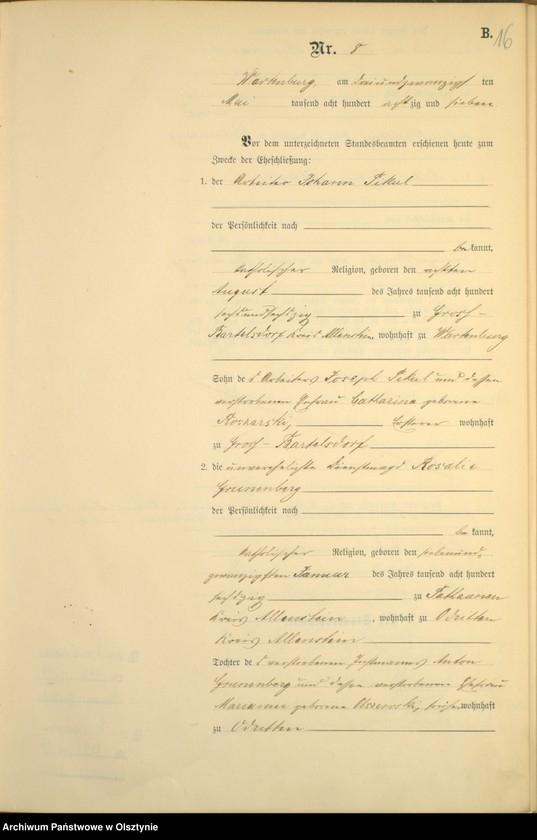 B.
16
Nr. 8
Wartenburg, am dreiundzwanzigsten
Mai tausend acht hundert achtzig und sieben
Vor dem unterzeichneten Standesbeamten erschienen heute zum
Zwecke der Eheschließung:
1. der Arbeiter Johann Pikul
der Persönlichkeit nach
bekannt,
katholischer Religion, geboren den achtten
August des Jahres tausend acht hundert
sechsundsechszig zu Gross-
Bartelsdorf Kreis Allenstein, wohnhaft zu Wartenburg
Sohn des Arbeiters Joseph Pikul und dessen
verstorbenen Ehefrau Catharina geborene
wohnhaft
zu Gross-Bartelsdorf
2. die unverehelichte Dienstmagd Rosalie
Grunenberg
der Persönlichkeit nach
bekannt,
katholischer Religion, geboren den siebenund-
zwanzigsten Januar des Jahres tausend acht hundert
sechszig zu
Kreis Allenstein, wohnhaft zu Odritten
Kreis Allenstein
Tochter des verstorbenen Instmannes Anton
Grunenberg und dessen verstorbenen Ehefrau
Marianna geborene wohnhaft
zu Odritten
Archiwum Państwowe w Olsztynie